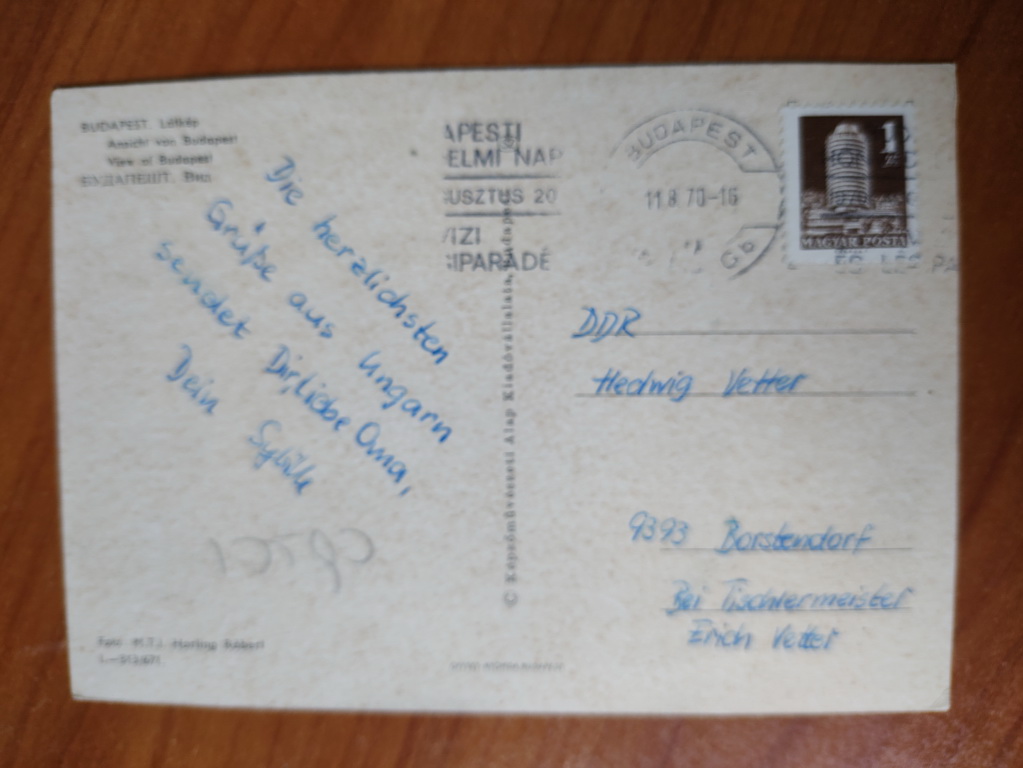 BUDAPEST. Látkép
Ansicht von Budapest
View of Budapest
БУДАПЕШТ. Вид
Die herzlichsten
Grüße aus Ungarn
sendet Dir, liebe Oma,
Dein Sybille
APESTI
ELMI NAP
USZTUS 20
VIZI
IPARÁDÉ
BUDAPEST
11.8.70-16
6b
1
MAGYAR POSTA
© Képzőművészeti Alap Kiadóvállalata, Budapest
DDR
Hedwig Vetter
9393 Borstendorf
Bei Tischlermeister
Erich Vetter
Foto: M.T.I.